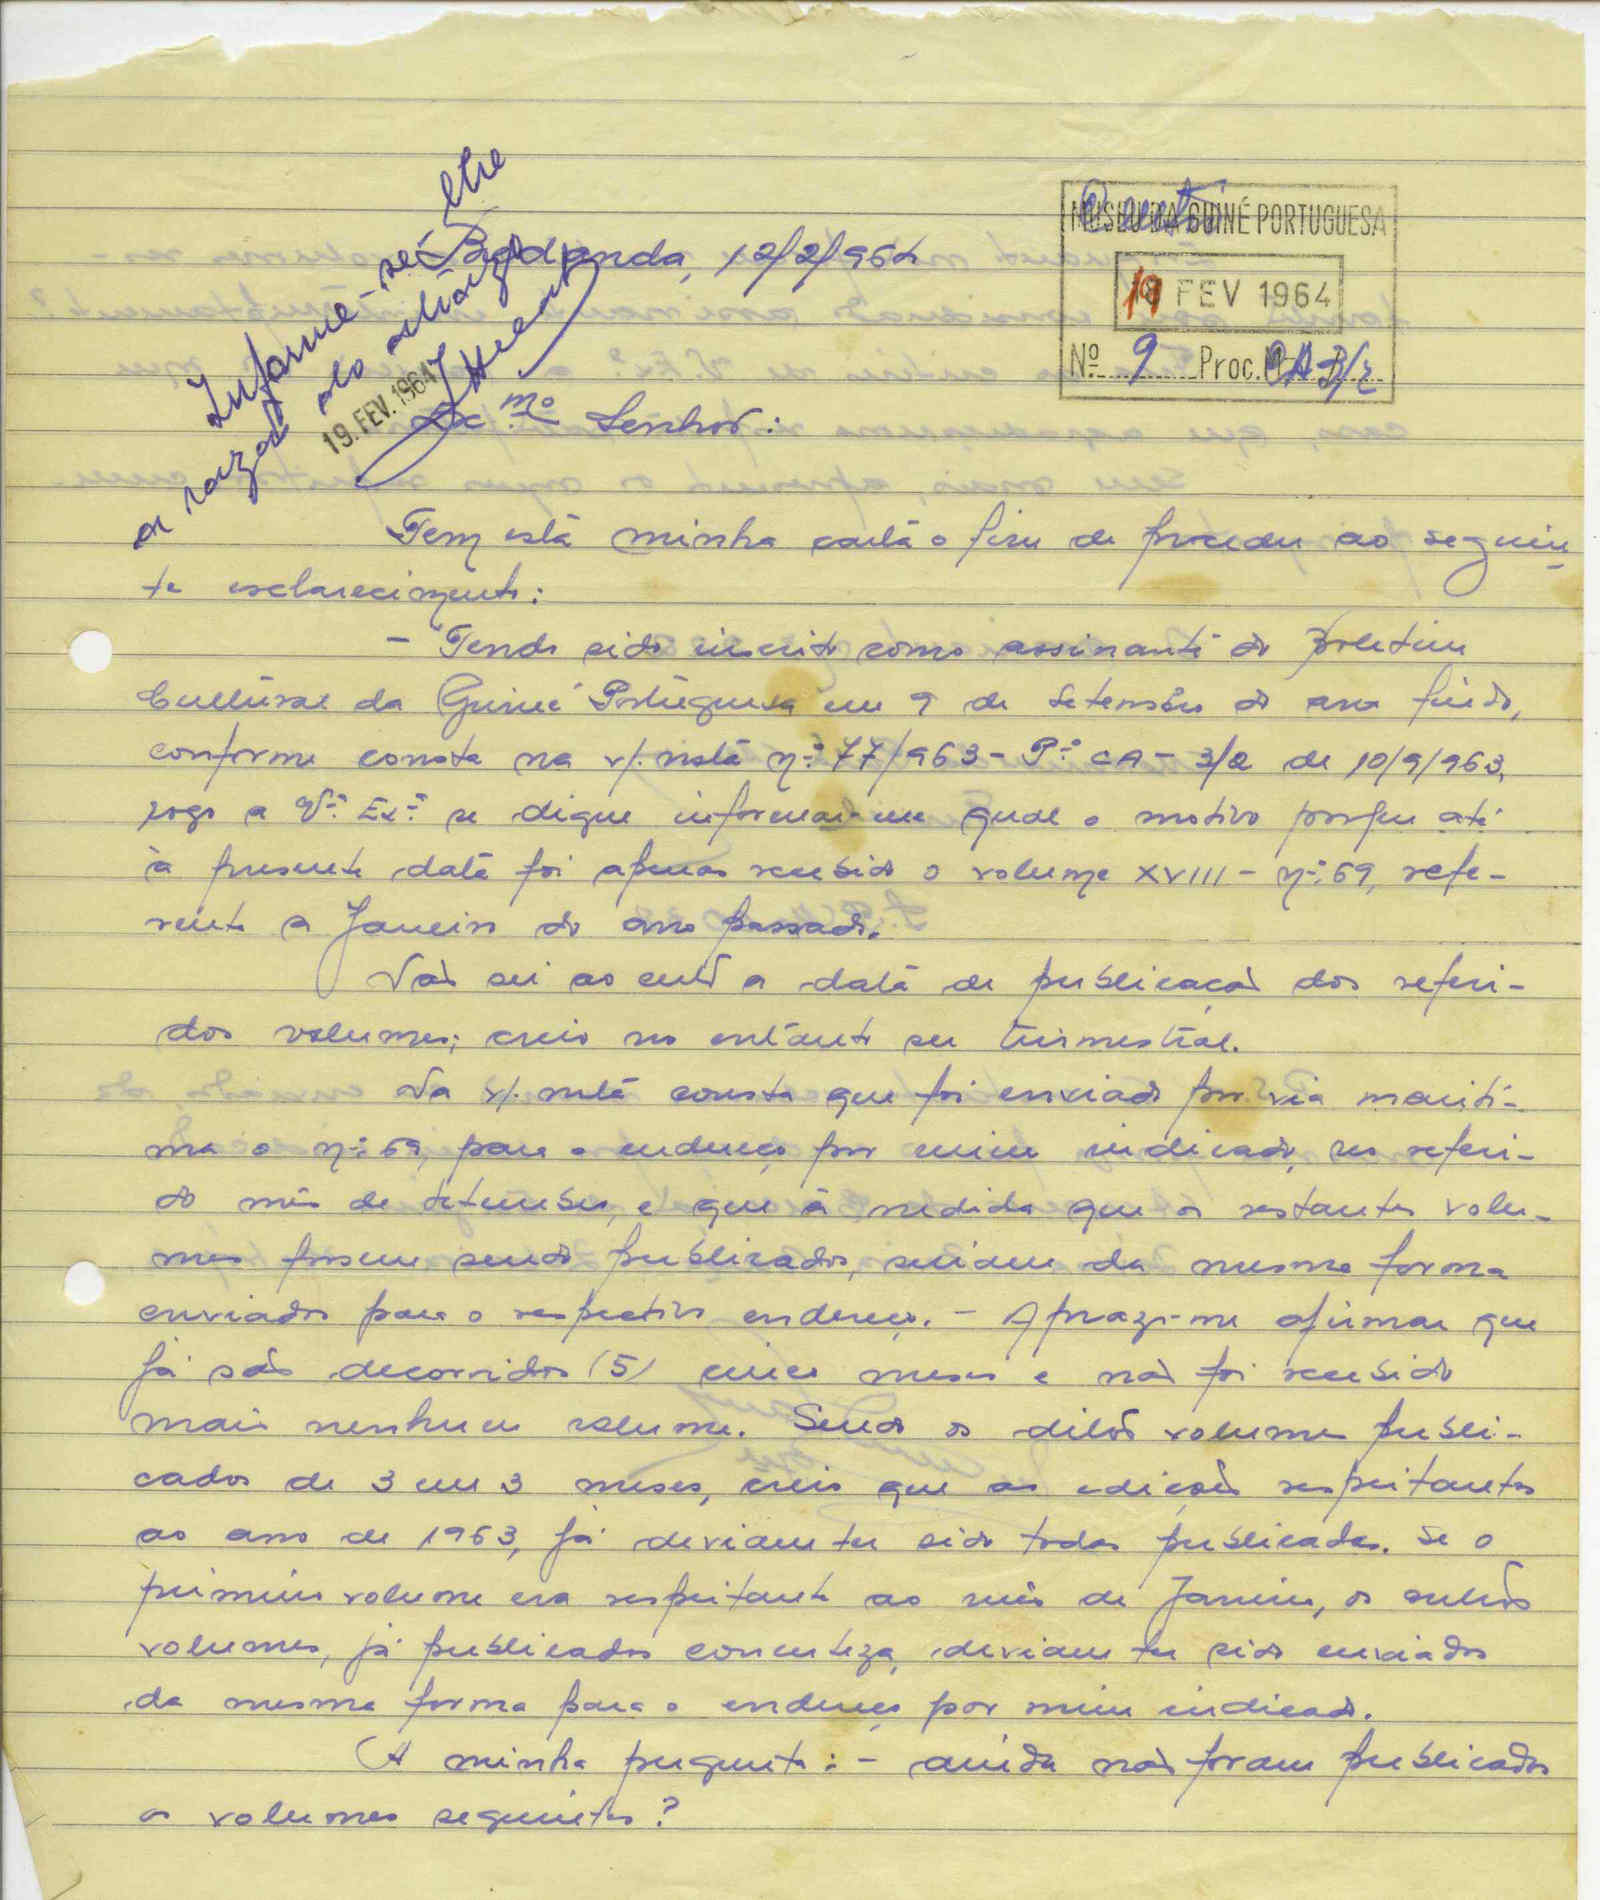 Informe-se
a razão do atrazo
19. FEV. 1964
Bedanda, 12/2/964
MUSEU DA GUINÉ PORTUGUESA
19 FEV 1964
Nº 9 Proc. CA 3/2
Exmo Senhor:
Tem esta minha carta o fim de proceder ao seguin
te esclarecimento:
- Tendo sido inscrito como assinante do Boletim
Cultural da Guiné Portuguesa em 9 de Setembro do ano findo,
conforme consta na v/. nota nº 77/963 - Pº CA - 3/2 de 10/9/963,
rogo a Vª Exª se digne informar-me qual o motivo porque até
à presente data foi apenas recebido o volume XVIII - nº 69, refe-
rente a Janeiro do ano passado.
Não sei ao certo a data de publicação dos referi-
dos volumes; creio no entanto ser trimestral.
Na v/. nota consta que foi enviado por via maríti-
ma o nº 69, para o endereço por mim indicado, no referi-
do mês de Setembro, e que à medida que os restantes volu-
mes fossem sendo publicados, seriam da mesma forma
enviados para o respectivo endereço. - Apraz-me afirmar que
já são decorridos (5) cinco meses e não foi recebido
mais nenhum volume. Sendo os ditos volumes publi-
cados de 3 em 3 meses, creio que as edições respeitantes
ao ano de 1963, já deviam ter sido todas publicadas. Se o
primeiro volume era respeitante ao mês de Janeiro, os outros
volumes, já publicados concerteza, deviam ter sido enviados
da mesma forma para o endereço por mim indicado.
A minha pergunta: - ainda não foram publicados
os volumes seguintes?